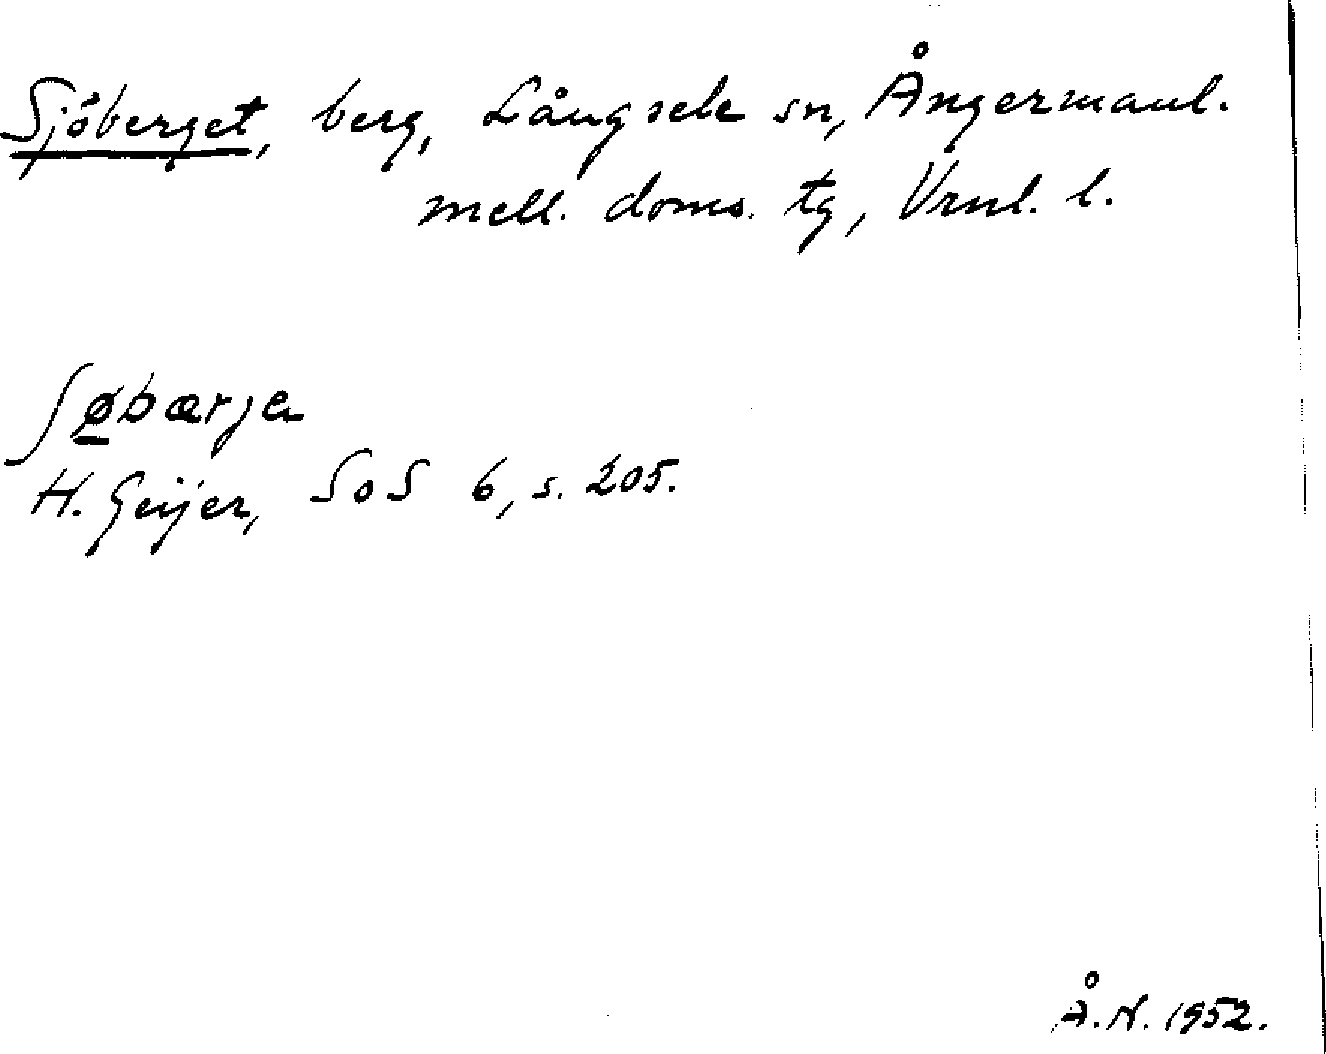 Sjöberget, berg, Långsele sn, Ångermanl.
mell. doms. tg, Vrnl. l.
ʃøbærja
H. Geijer, SoS 6, s. 205.
Å.N. 1952.